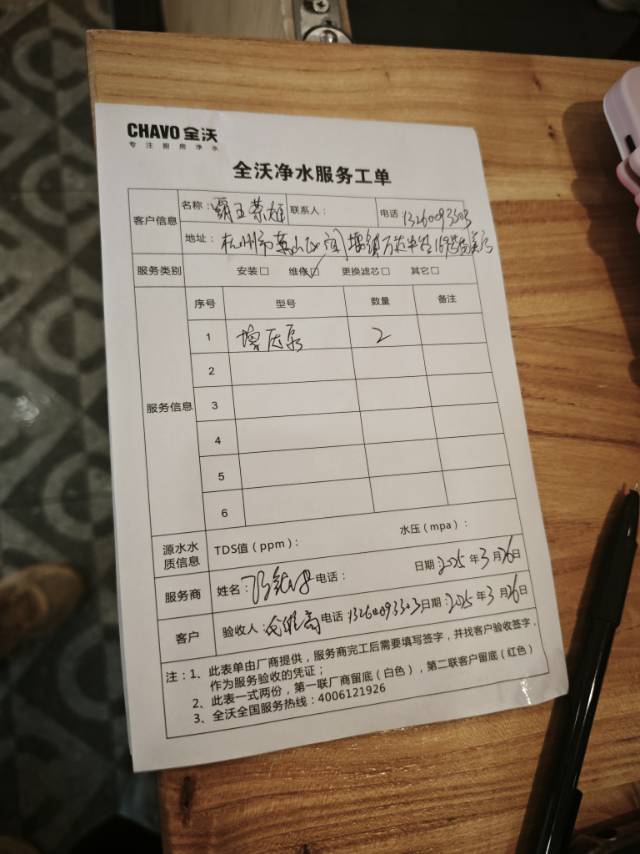 CHAVO 全沃
专注厨房净水
全沃净水服务工单
客户信息 名称：霸王茶姬 联系人： 电话
地址：杭州市萧山区闻堰镇万达
服务类别 安装□ 维修☑ 更换滤芯□ 其它□
服务信息 序号 型号 数量 备注
1 增压泵 2
2
3
4
5
6
源水水质信息 TDS值（ppm）： 水压（mpa）：
服务商 姓名： 电话： 日期：2025年3月26日
客户 验收人： 电话 13260093303 日期：2025年3月26日
注：1、此表单由厂商提供，服务商完工后需要填写签字，并找客户验收签字，
作为服务验收的凭证；
2、此表一式两份，第一联厂商留底（白色），第二联客户留底（红色）
3、全沃全国服务热线：4006121926